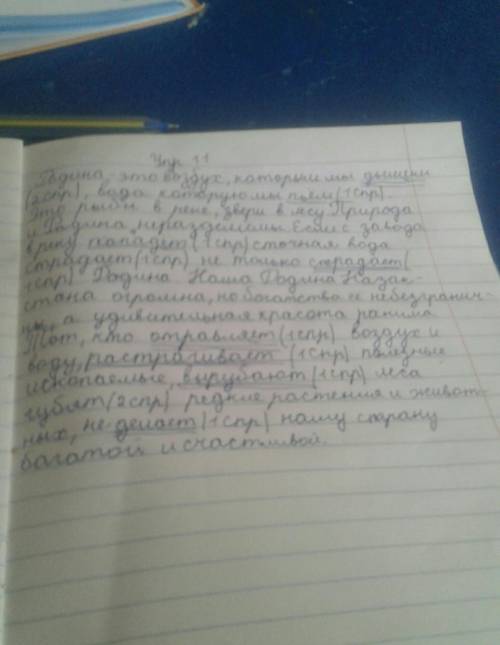 Упр 11
Родина, это воздух, которым мы дышим
(2спр), вода которую мы пьём (1спр).
Это рыбы в реке, звери в лесу Природа
и Родина неразделимы. Если с завода
в реку попадет (1спр) сточная вода
страдает (1спр) не только страдает(
1спр) Родина Наша Родина Казах-
стана огромна, но богатства её небезгранич-
ны, а удивительная красота ранима
Тот, кто отравляет (1спр) воздух и
воду, растрагивает (1спр) полезные
ископаемые, вырубают (1спр) леса
губят (2спр) редкие растения и живот-
ных, не делает (1спр) нашу страну
багатой и счастливой.